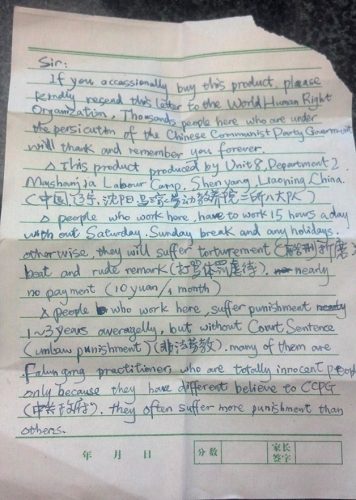 Sir:
If you occassionally buy this product, please
kindly resend this letter to the World Human Right
Organization. Thousands people here who are under
the persicution of the Chinese Communist Party Government
will thank and remember you forever.
△ This product produced by Unit 8, Department 2
Mashanjia Labour Camp, Shenyang, Liaoning, China.
(中国, 辽宁, 沈阳, 马三家劳动教养院二所八大队)
△ people who work here, have to work 15 hours a day
with out Saturday. Sunday break and any holidays.
otherwise, they will suffer torturement (酷刑折磨).
beat and rude remark (打骂体罚虐待), nearly
no payment (10 yuan / 1 month)
△ people who work here, suffer punishment
1~3 years averagelly, but without Court Sentence
(unlaw punishment) (非法劳教). many of them are
Falun gong practitioner, who are totally innocent people
only because they have different believe to CCPG
(中共政府), they often suffer more punishment than
others.
年 月 日 分数 家长签字